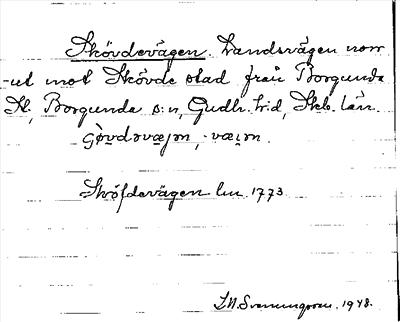 Skövdevägen. Landsvägen norr
-ut mot Skövde stad från Borgunda
St, Borgunda s:n, Gudh. hd, Skb. län.
-væjɔn.
Sköfdevägen lm 1773
1948.